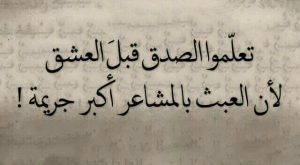 تعلّموا الصدق قبلَ العشق
لأن العبث بالمشاعر أكبر جريمة !